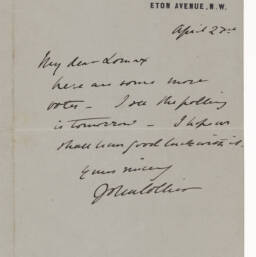 ETON AVENUE, N.W.
April 27th
My dear Lomax
here are some more
votes - I see the polling
is tomorrow - I hope we
shall have good luck with it.
Yours sincerely
John Collier